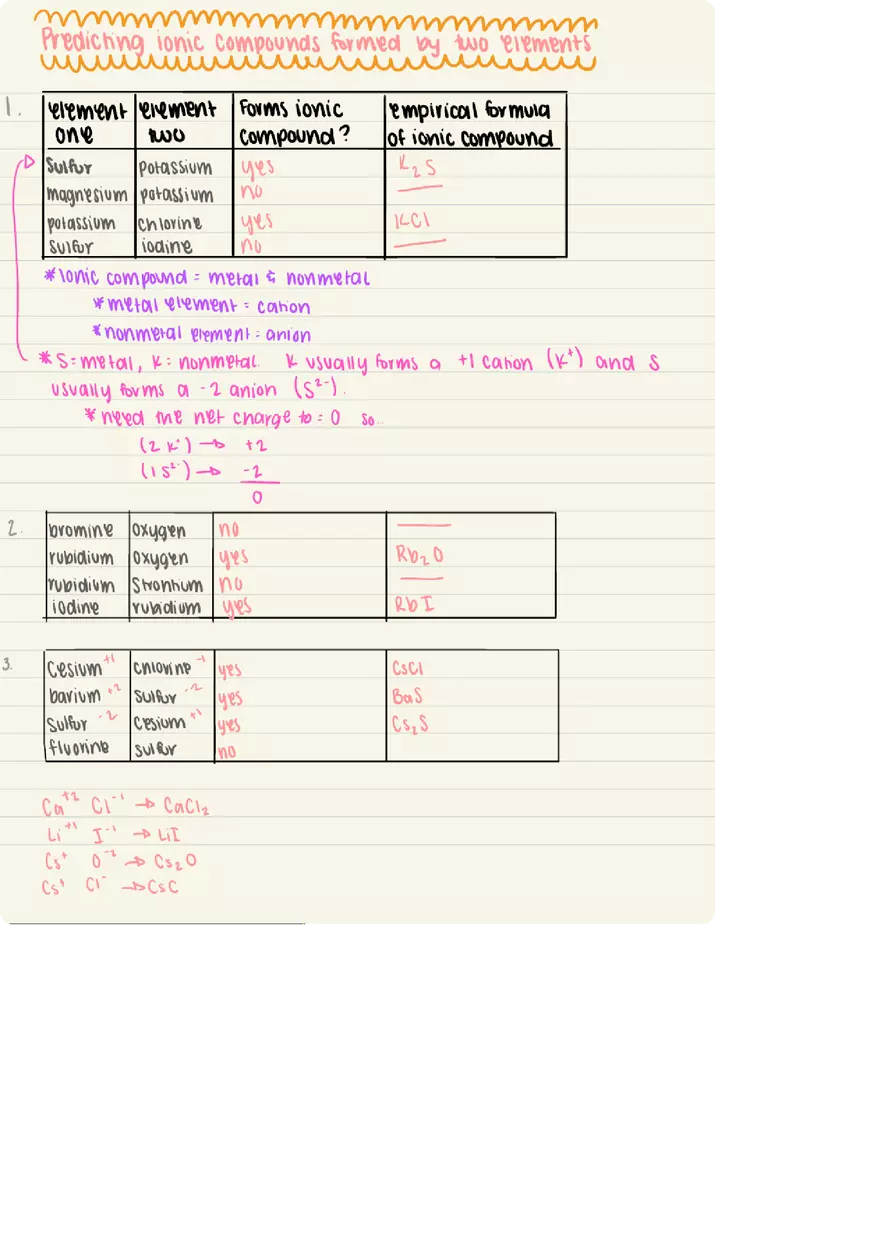 Predicting ionic compounds formed by two elements
1. element one element two Forms ionic compound? empirical formula of ionic compound
Sulfur potassium yes K₂S
magnesium potassium no ——
potassium chlorine yes KCl
Sulfur iodine no ——
*Ionic compound = metal & nonmetal
*metal element = cation
*nonmetal element = anion
*S=metal, K = nonmetal. K usually forms a +1 cation (K⁺) and S
usually forms a -2 anion (S²⁻).
*need the net charge to = 0 so...
(2 K⁺) → +2
(1 S²⁻) → -2
0
2. bromine oxygen no ——
rubidium oxygen yes Rb₂O
rubidium Strontium no ——
iodine rubidium yes RbI
3. Cesium⁺¹ chlorine⁻¹ yes CsCl
barium⁺² sulfur⁻² yes BaS
Sulfur⁻² cesium⁺¹ yes Cs₂S
fluorine sulfur no
Ca⁺² Cl⁻¹ → CaCl₂
Li⁺¹ I⁻¹ → LiI
Cs⁺ O⁻² → Cs₂O
Cs⁺ Cl⁻ → CsC